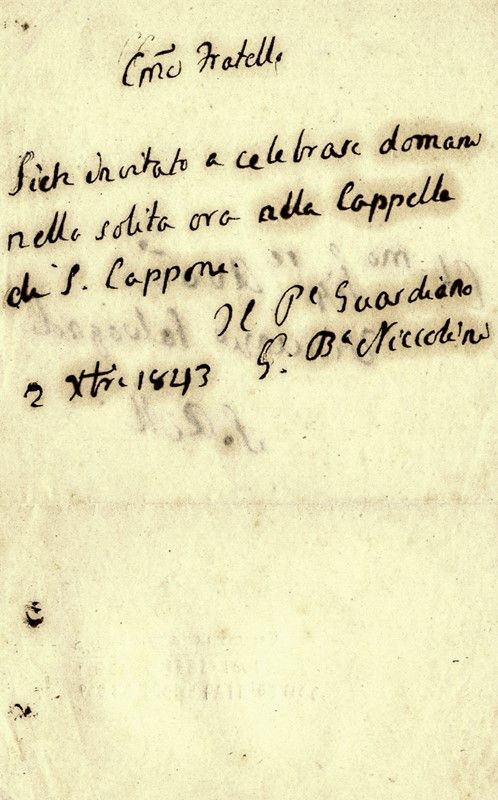 Cmo Fratello
Siete invitato a celebrare domani
nella solita ora alla Cappella
di S. Cappone.
Il Pe Guardiano
G. Ba Niccolini
2 Xbre 1843